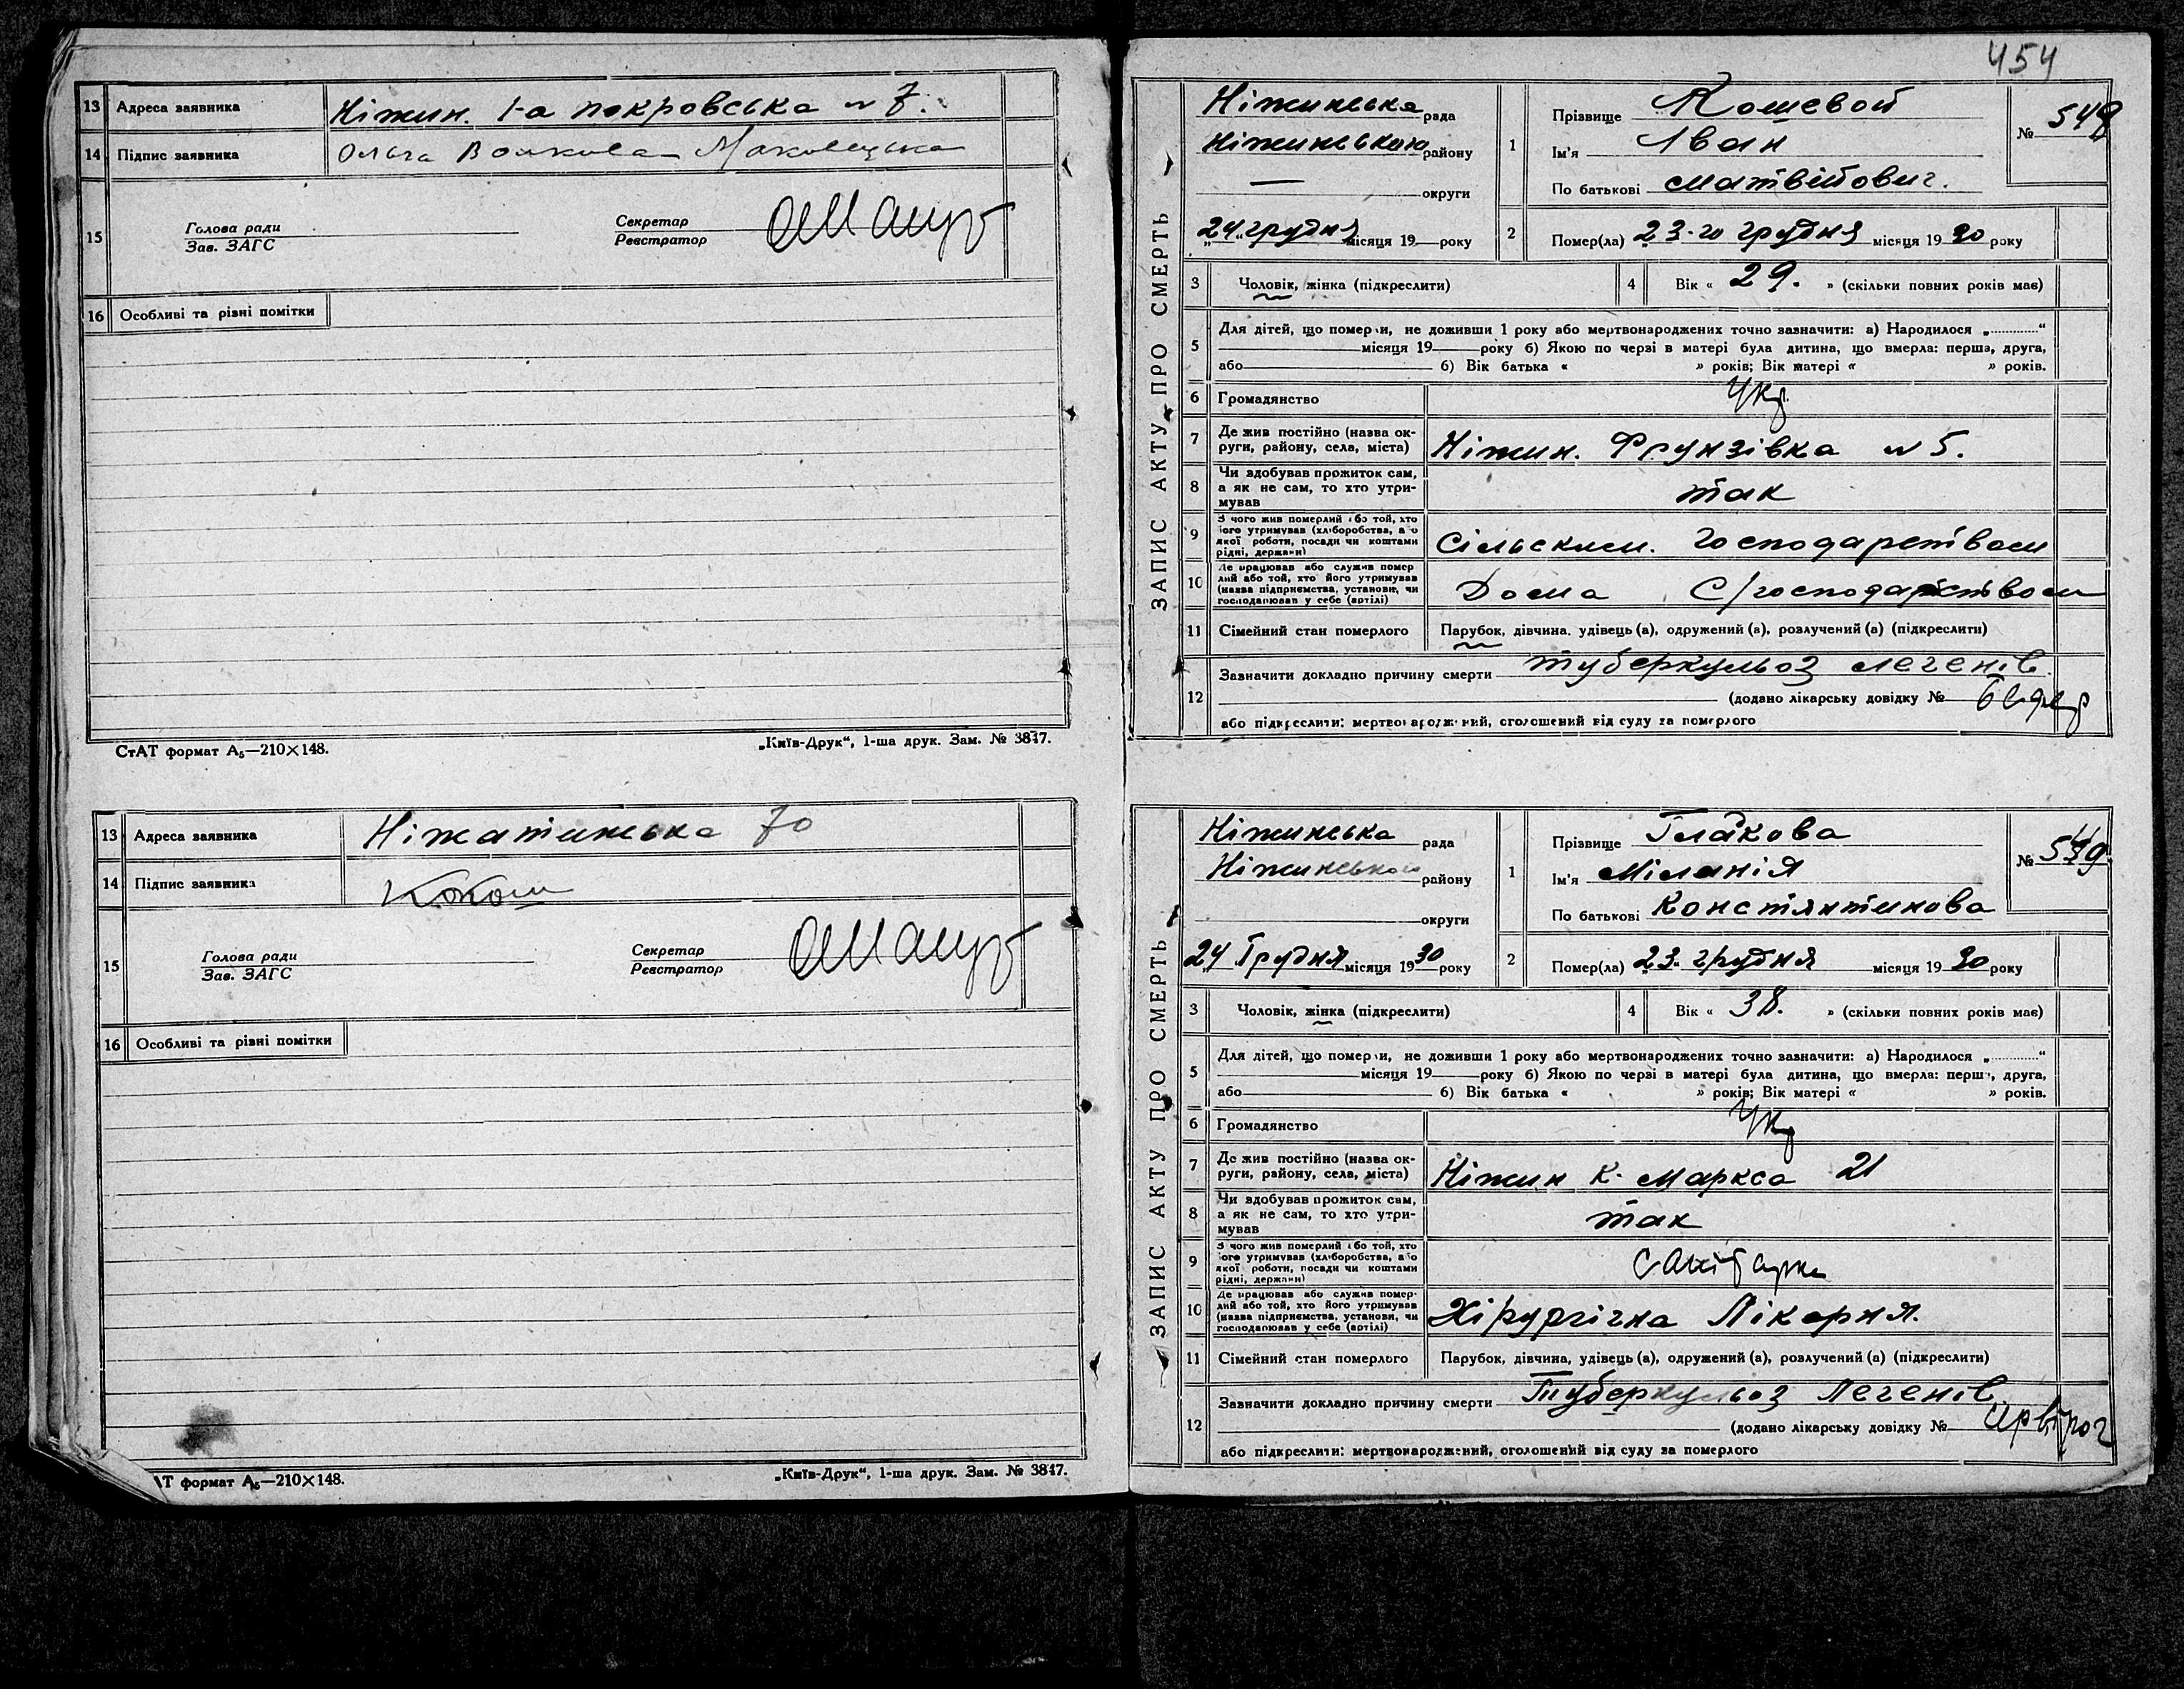 13 Адреса заявника Ніжин. 1-а покровська № 7.
14 Підпис заявника Ольга Волкова
15 Голова ради Зав. ЗАГС Секретар Реєстратор
16 Особливі та різні помітки
СтАТ формат А₅—210×148. „Київ-Друк“, 1-ша друк. Зам. № 3847.
13 Адреса заявника Ніжатинська 70
14 Підпис заявника
15 Голова ради Зав. ЗАГС Секретар Реєстратор
16 Особливі та різні помітки
АТ формат А₅—210×148. „Київ-Друк“, 1-ша друк. Зам. № 3847.
454
ЗАПИС АКТУ ПРО СМЕРТЬ
Ніжинська рада
Ніжинського району
— округи
„24“ грудня місяця 19 року
1 Прізвище Кошевой
Ім'я Іван
По батькові Матвійович.
№ 548
2 Помер(ла) „23-го грудня місяця 1930 року
3 Чоловік, жінка (підкреслити)
4 Вік « 29. » (скільки повних років має)
5 Для дітей, що померли, не доживши 1 року або мертвонароджених точно зазначити: а) Народилося „ “
місяця 19 року б) Якою по черзі в матері була дитина, що вмерла: перша, друга,
або б) Вік батька « » років; Вік матері « » років.
6 Громадянство Укр.
7 Де жив постійно (назва ок-
руги, району, села, міста) Ніжин. Фрунзівка № 5.
8 Чи здобував прожиток сам,
а як не сам, то хто утри-
мував так
9 З чого жив померлий або той, хто
його утримував (хліборобства, або
якої роботи, посади чи коштами
рідні, держави) Сільским. Господарством
10 Де працював або служив помер
лий або той, хто його утримував
(назва підприємства, установи, чи
господарював у себе (артілі) Дома С/господарством
11 Сімейний стан померлого Парубок, дівчина, удівець (а), одружений (а), розлучений (а) (підкреслити)
12 Зазначити докладно причину смерти туберкульоз легенів.
(додано лікарську довідку №
або підкреслити: мертвонароджений, оголошений від суду за померлого
ЗАПИС АКТУ ПРО СМЕРТЬ
Ніжинська рада
Ніжинського району
округи
24 Грудня місяця 1930 року
1 Прізвище Гладкова
Ім'я Міланія
По батькові Констянтинова
№ 549.
2 Помер(ла) „23. грудня місяця 1930 року
3 Чоловік, жінка (підкреслити)
4 Вік « 38. » (скільки повних років має)
5 Для дітей, що померли, не доживши 1 року або мертвонароджених точно зазначити: а) Народилося „ “
місяця 19 року б) Якою по черзі в матері була дитина, що вмерла: перша, друга,
або б) Вік батька « » років; Вік матері « » років.
6 Громадянство Укр
7 Де жив постійно (назва ок-
руги, району, села, міста) Ніжин К. Маркса 21
8 Чи здобував прожиток сам,
а як не сам, то хто утри-
мував так
9 З чого жив померлий або той, хто
його утримував (хліборобства, або
якої роботи, посади чи коштами
рідні, держави) Санітарка
10 Де працював або служив помер-
лий або той, хто його утримував
(назва підприємства, установи, чи
господарював у себе (артілі) Хірургічна Лікарня.
11 Сімейний стан померлого Парубок, дівчина, удівець (а), одружений (а), розлучений (а) (підкреслити)
12 Зазначити докладно причину смерти Туберкульоз Легенів
(додано лікарську довідку №
або підкреслити: мертвонароджений, оголошений від суду за померлого